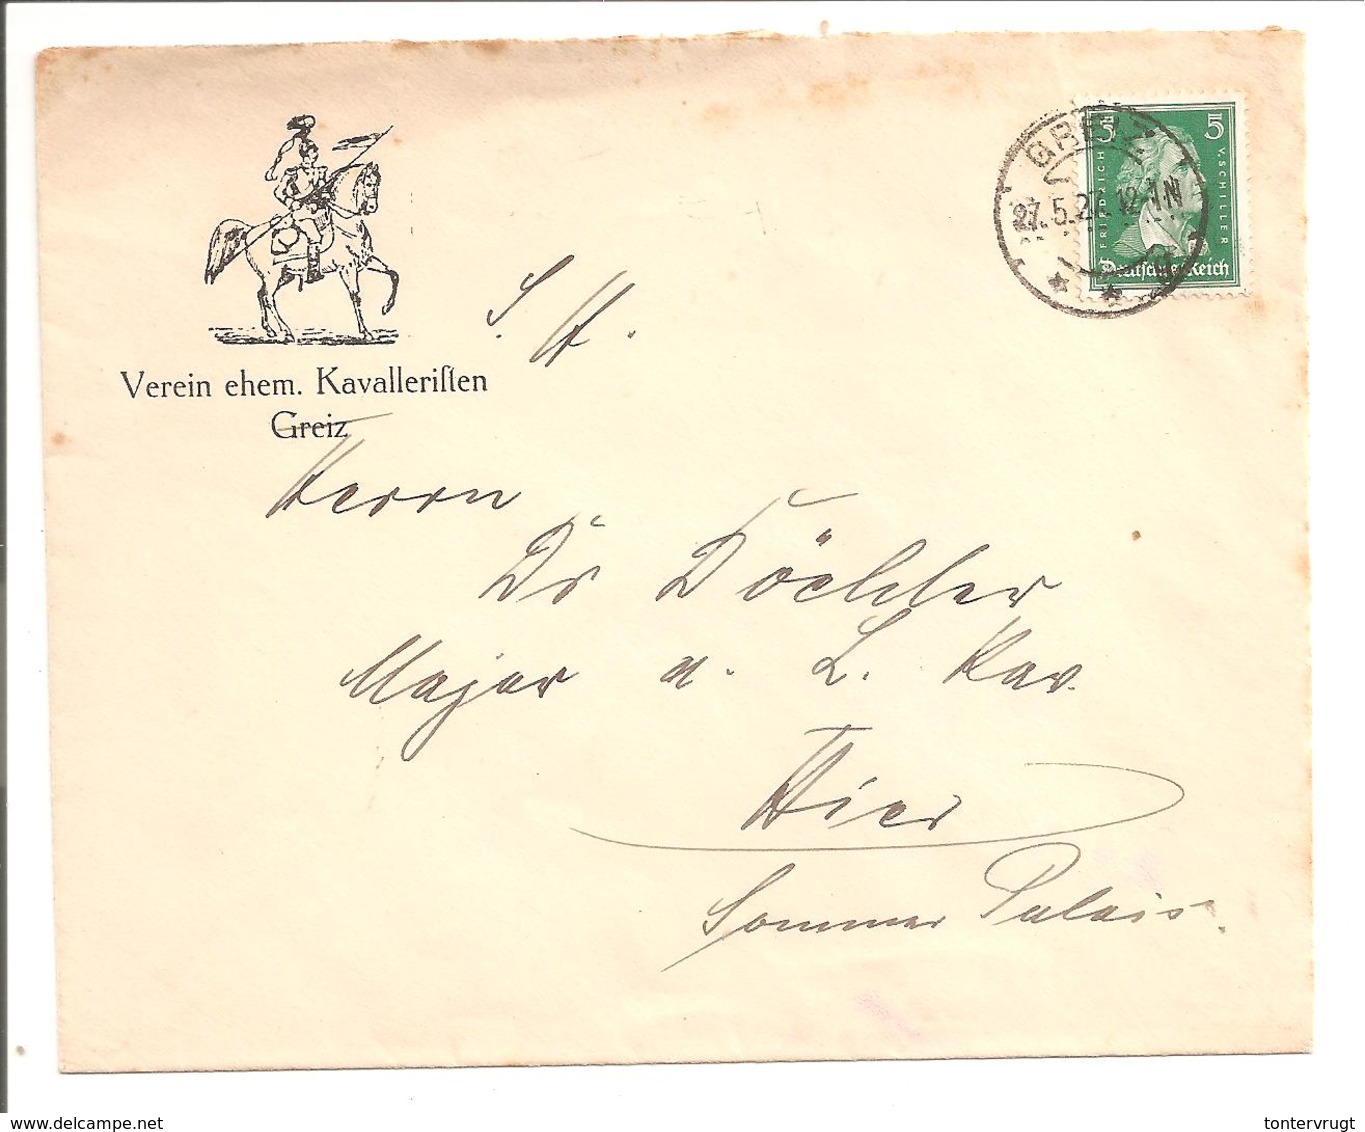 5 5
FRIEDRICH V. SCHILLER
Deutsches Reich
GREIZ
27.5.27. 12-1 N
Verein ehem. Kavalleriſten
Greiz
S. H.
Herrn
Dr
Major a. L. Kav.
Hier
Sommer Palais.
delcampe.net
tontervrugt